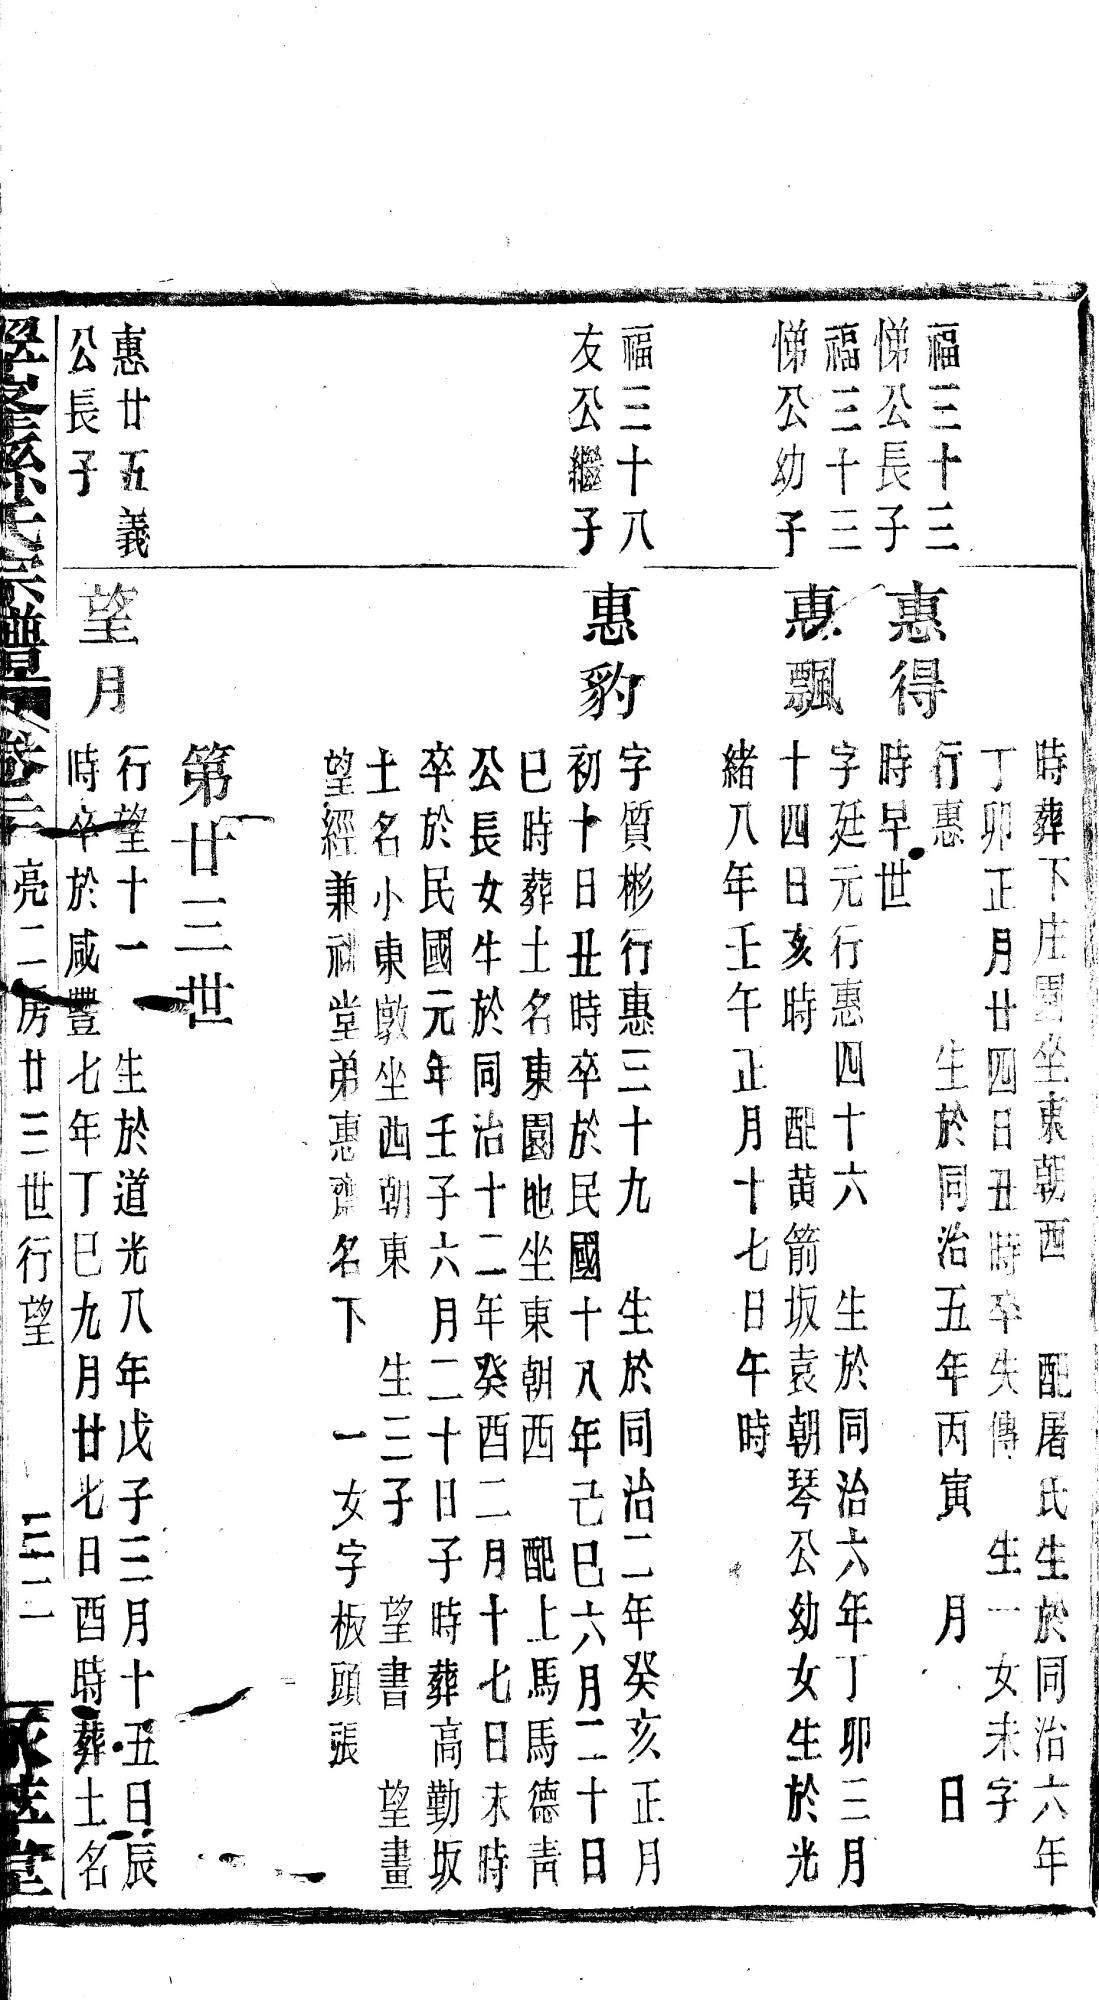 時葬下庄園坐東朝西　配屠氏生於同治六年
丁卯正月廿四日丑時卒失傳　生一女未字
福三十三
悌公長子
惠得
行惠　生於同治五年丙寅　月　日
時早世
福三十三
悌公幼子
惠飄
字廷元行惠四十六　生於同治六年丁卯三月
十四日亥時　配黄箭坂袁朝琴公幼女生於光
緒八年壬午正月十七日午時
福三十八
友公繼子
惠豹
字質彬行惠三十九　生於同治二年癸亥正月
初十日丑時卒於民國十八年己巳六月二十日
巳時葬土名東園地坐東朝西　配上馬馬德靑
公長女生於同治十二年癸酉二月十七日未時
卒於民國元年壬子六月二十日子時葬高勤坂
土名小東墩坐西朝東　生三子　望書　望畫
望經兼祧堂弟惠齋名下　一女字板頭張
第廿三世
惠廿五義
公長子
望月
行望十一　生於道光八年戊子三月十五日辰
時卒於咸豐七年丁巳九月廿七日酉時葬土名
孫氏宗譜　卷二　亮二房廿三世行望　三二　堂